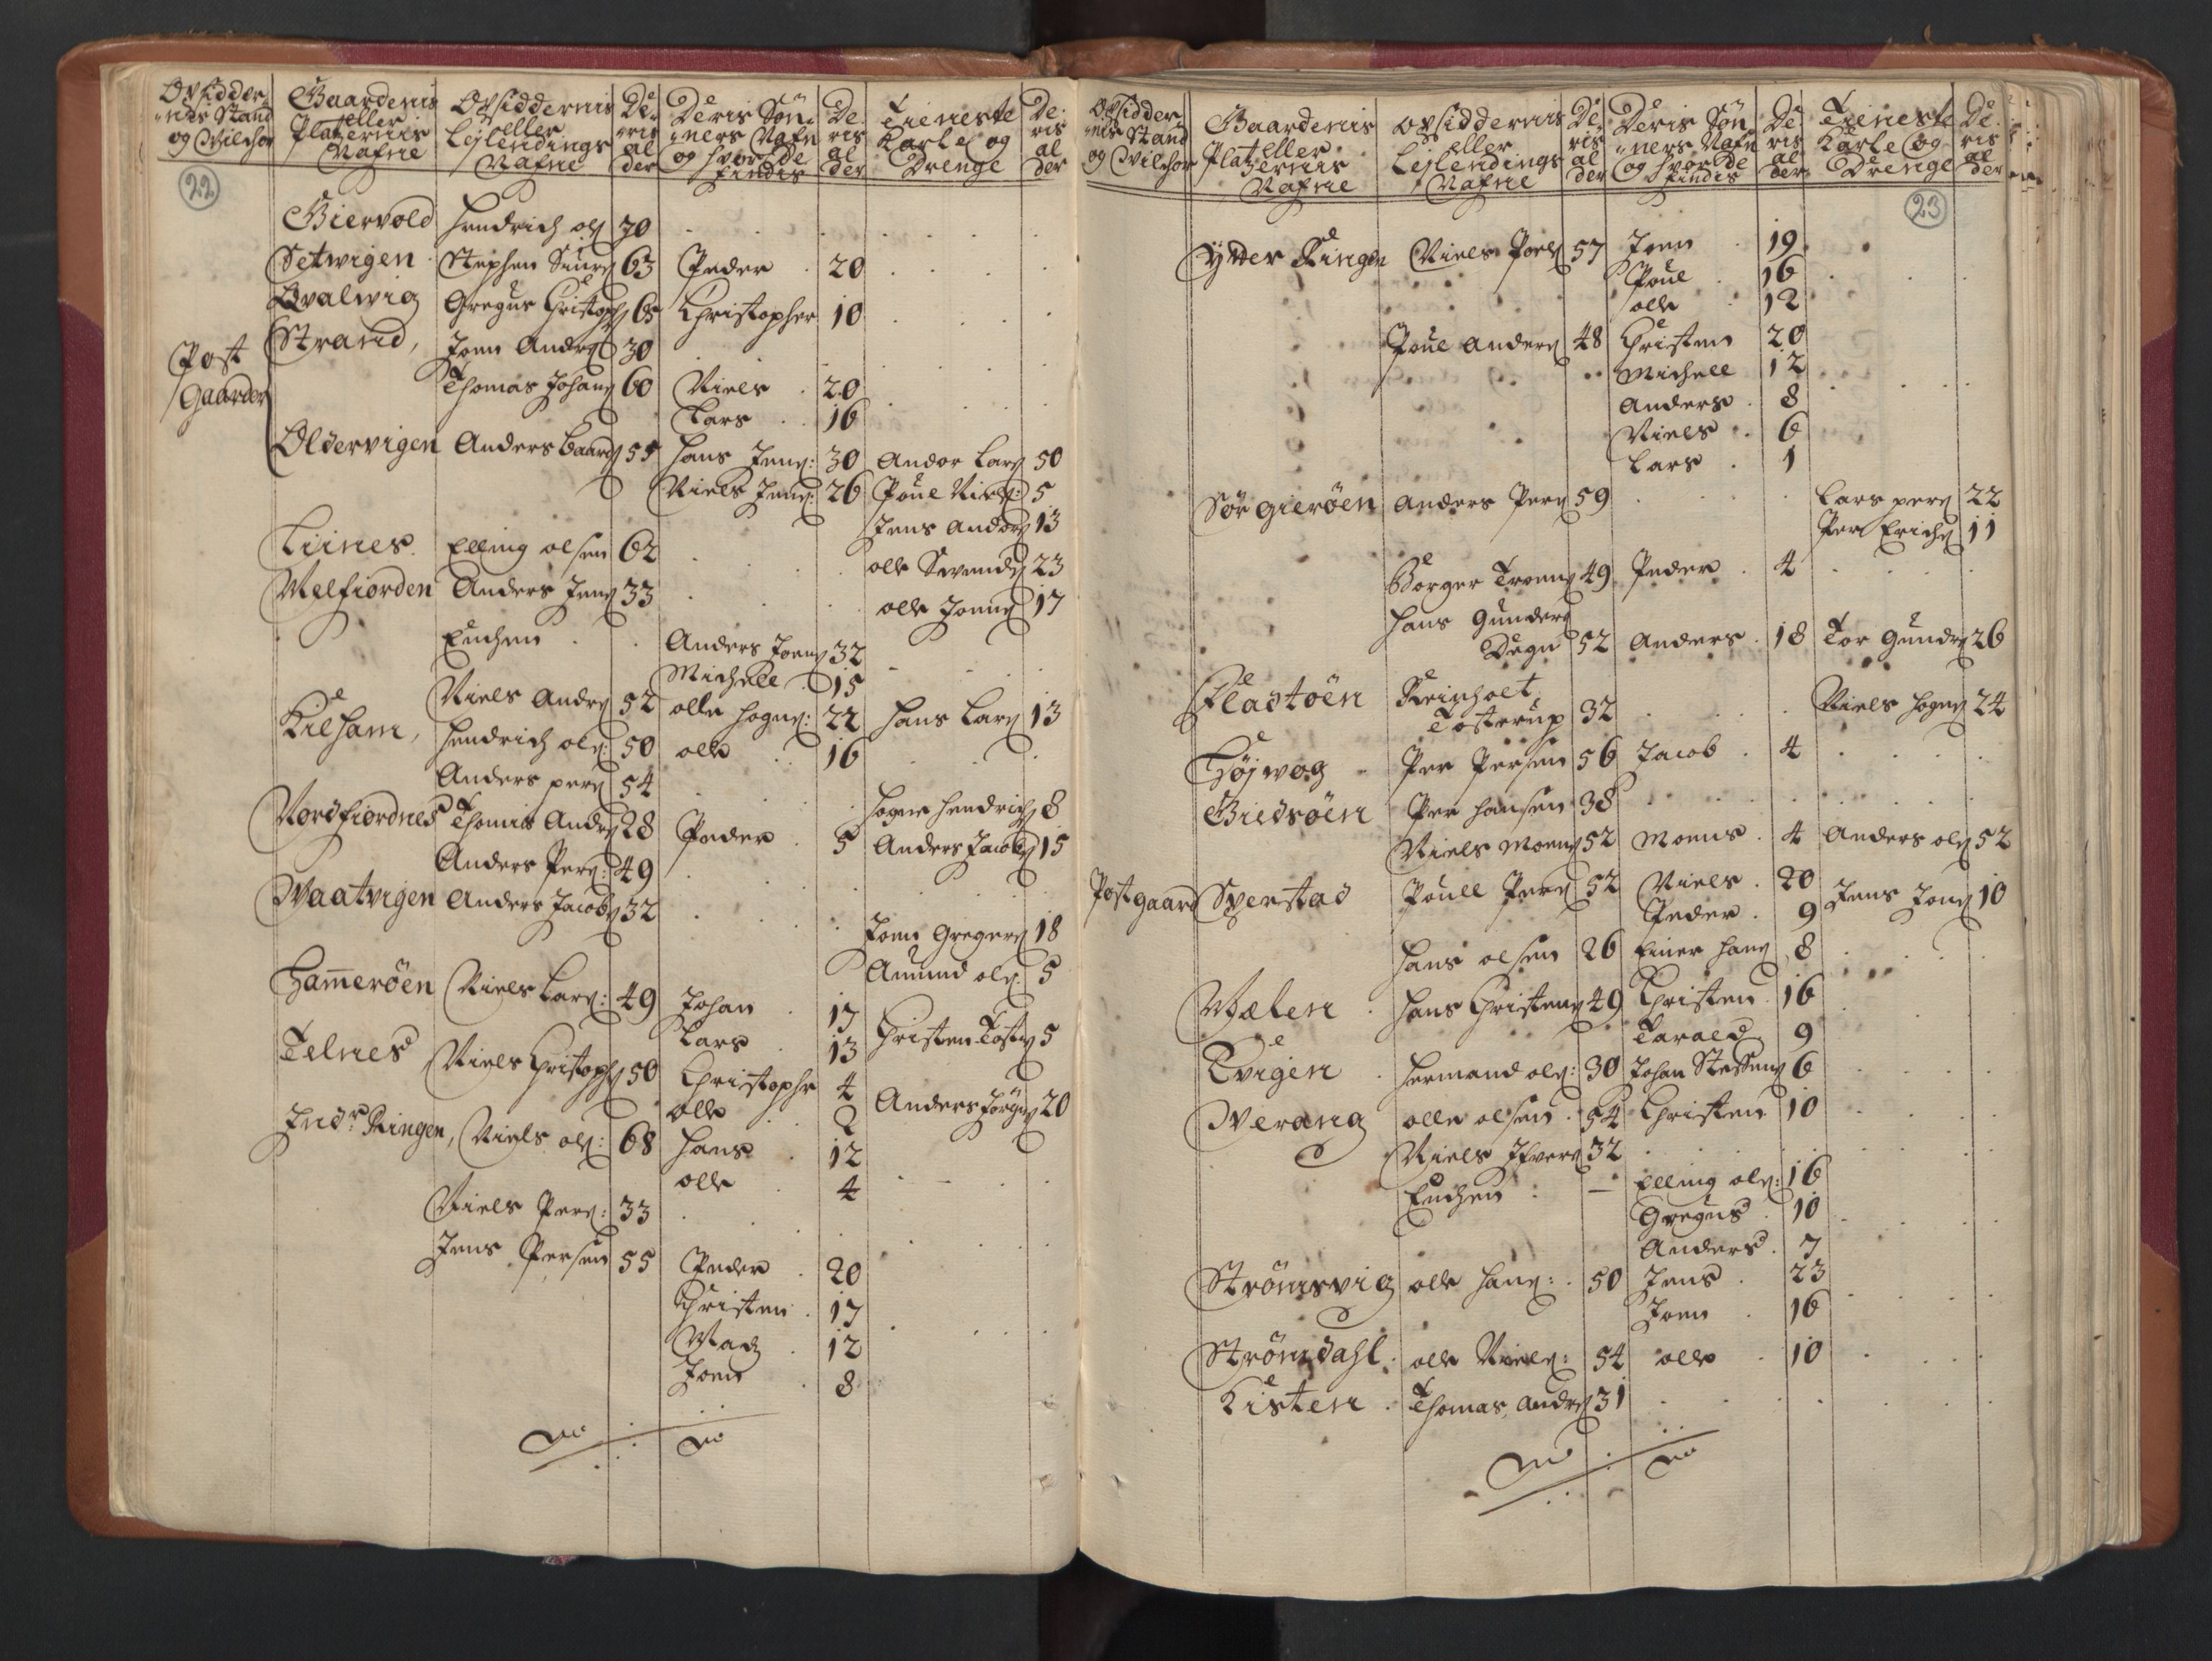 Opsidder¬
nes Stand
og Vilchor
Gaardenis
eller
Platzernis
Nafne
Opsiddernis
eller
Lejlendings
Nafne
De¬
ris
al
der
Deris Søn¬
ners Nafn
og hvor De
findis
De¬
ris
al
der
Tieneste
Karle og
Drenge
De¬
ris
al
der
22
Giervold Hendrich ols 30
Setwigen Stephen Siurs 63 Peder 20
Qvalwig Gregus Christoph 65 Christopher 10
Post
Gaarder
Strand, Joen Anders 30
Thomas Johans 60 Niels 20
Lars 16
Oldervigen Anders Baards 55 Hans Jens: 30 Andor Lars 50
Niels Jens: 26 Poul Niels: 5
Jens Andors 13
Liines Elling olsen 62 olle Svends 23
Melfiorden Anders Jens 33 olle Joens 17
Enchen Anders Joens 32
Michell 15
Kilham, Niels Anders 52 olle Hogns: 22 Hans Lars 13
Hendrich ols: 50 olle 16
Anders pers 54
Nordfiordnes Thomis Anders 28 Peder 5 Hogne Hendrichs 8
Anders Jacobs 15
Anders Pers: 49
Waatvigen Anders Jacobs 32
Joen Gregers 18
Amund ols: 5
Hammerøen Niels Lars: 49 Johan 17
Lars 13 Christen Tosts 5
Telnes Niels Christophs 50 Christopher 4
olle 2 Anders Jørgens 20
Indr Ringen, Niels ols: 68 Hans 12
olle 4
Niels Pers: 33
Jens Persen 55 Peder 20
Christen 17
Mads 12
Joen 8
Opsidder¬
nis Stand
og Vilchor
Gaardenis
eller
Platzernis
Nafne
Opsiddernis
eller
Lejlendings
Nafne
De¬
ris
al
der
Deris Søn¬
ners Nafn
og hvor De
findis
De¬
ris
al
der
Tieneste
Karle og
Drenge
De¬
ris
al
der
23
Ytter Ringen Niels Poels 57 Joen 19
Poul 16
olle 12
Poul Anders 48 Christen 20
Michell 12
Anders 8
Niels 6
Lars 1
Sør Gierøen Anders Pers 59 Lars pers 22
Per Erichs 11
Borger Troens 49 Peder 4
Hans Gunders
Degn 52 Anders 18 Tor Gunders 26
Fladtøen Reinholt
Tosterup 32 Niels Hogns 24
Højvog Per Persen 56 Jacob 4
Giedsøen Per Hansen 38
Niels Moens 52 Moens 4 Anders ols 52
Postgaard Sperstad Poull Pers 52 Niels 20
Peder 9 Jens Joens 10
Hans olsen 26 Einer Hans 8
Mælen Hans Christens 49 Christen 16
Tarald 9
Evigen Hermand ols: 30 Johan Steffens 6
Werang olle olsen 54 Christen 10
Niels Ifvers 32
Enchen Elling ols: 16
Gregus 10
Anders 7
Strømsvig olle Hans: 50 Jens 23
Joen 16
Strømdahl olle Niels: 54 olle 10
Kisten Thomas Anders 31